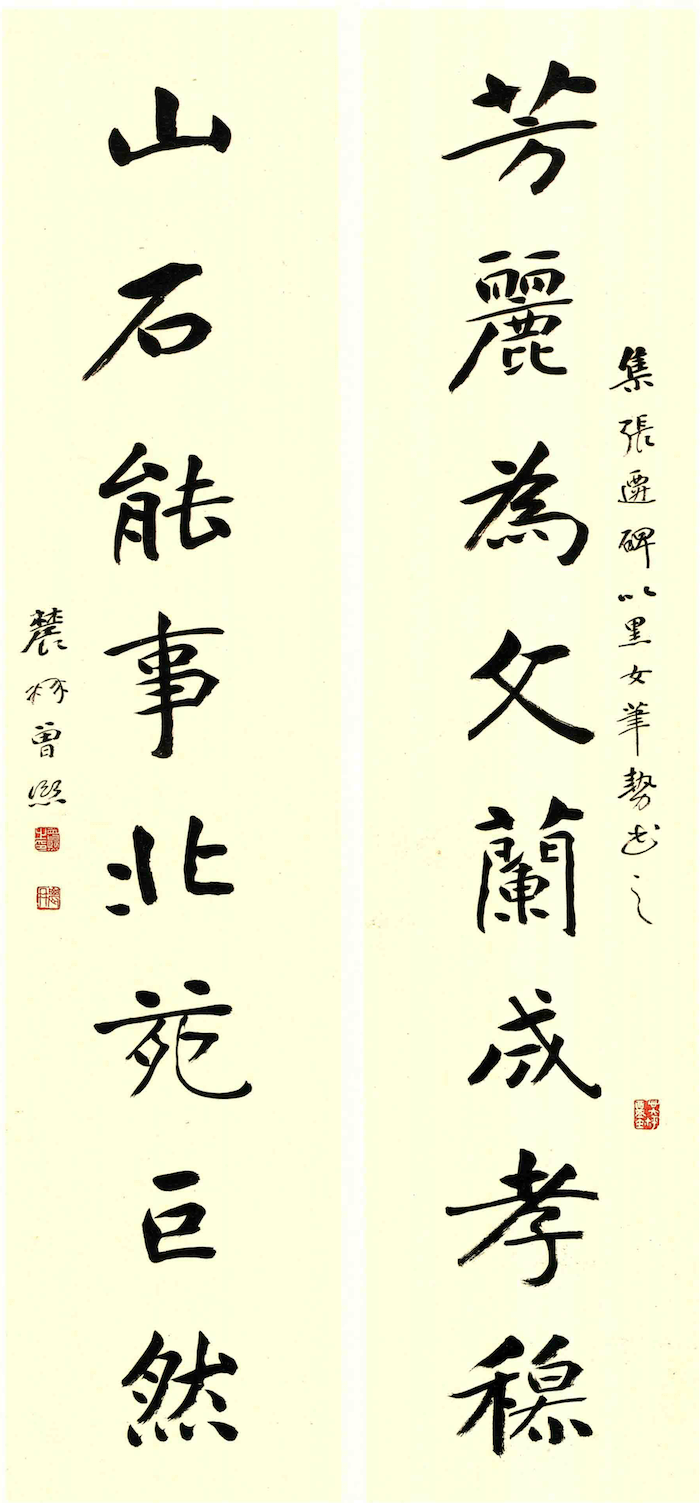 集張遷碑以黑女筆勢書之
芳麗為文蘭成孝穆
山石能事北苑巨然
農髯曾熙